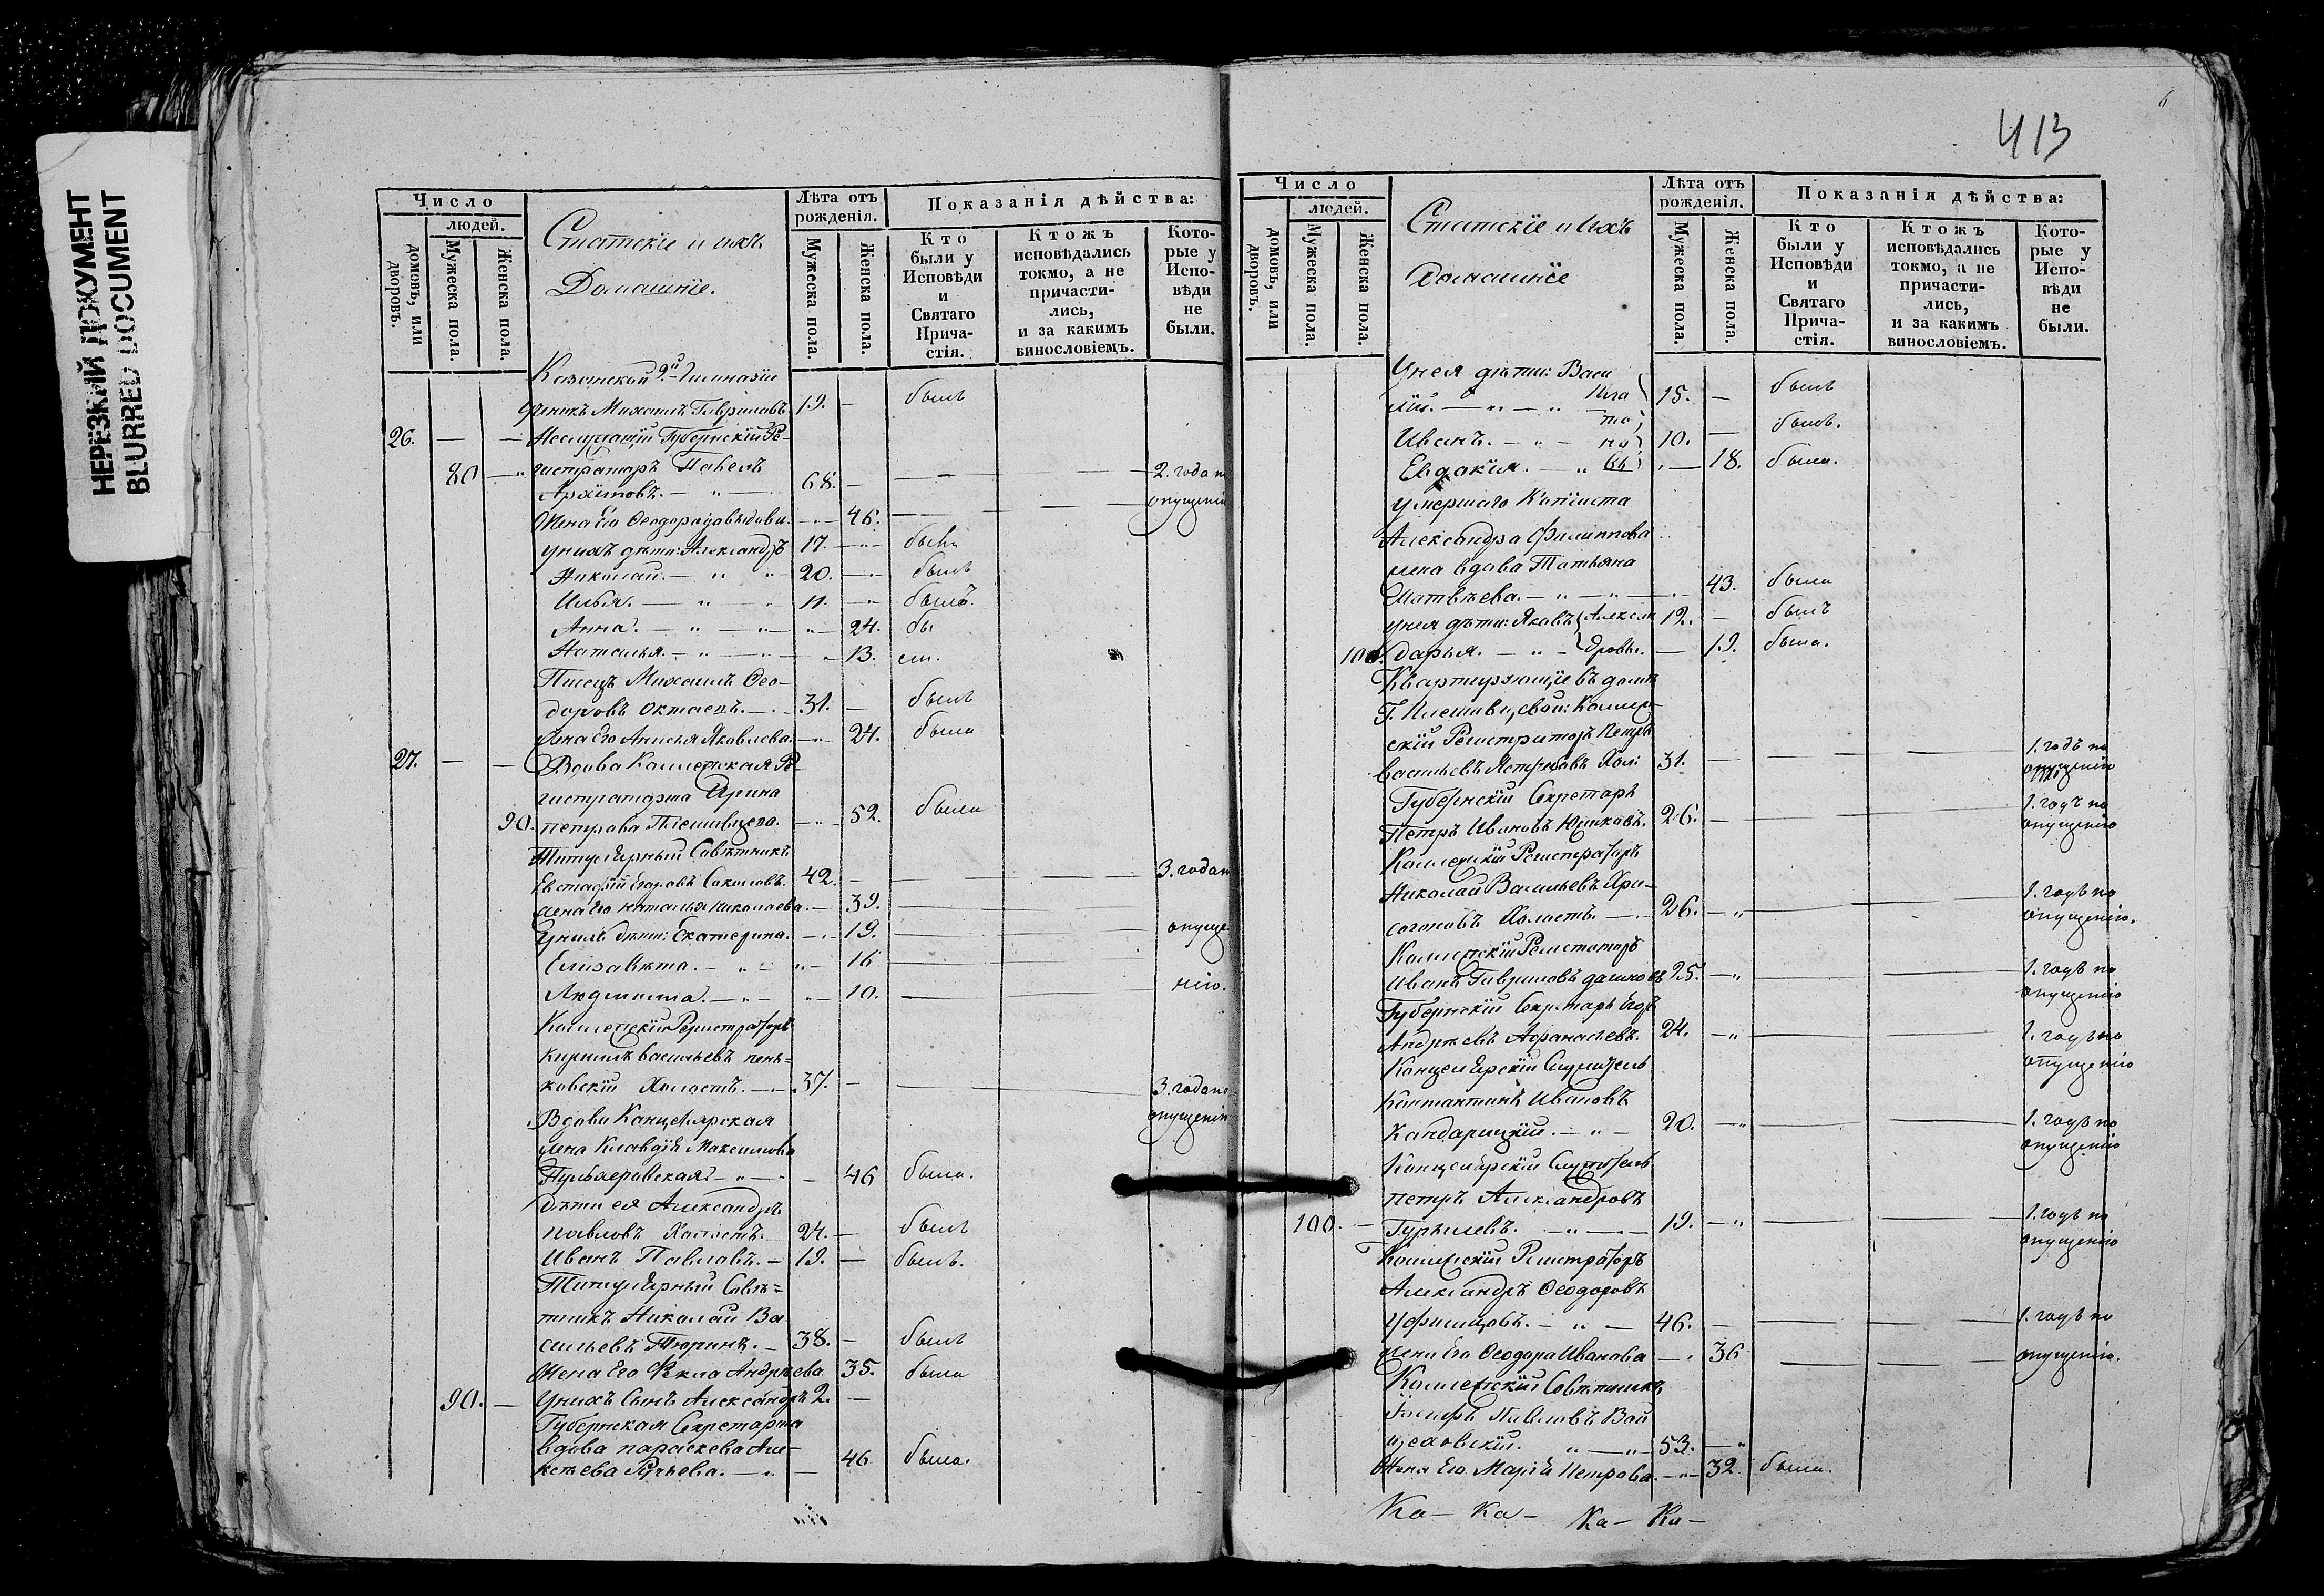 НЕРЕЗКИЙ ДОКУМЕНТ
BLURRED DOCUMENT
Число
людей.
домовъ, или дворовъ.
Мужеска пола.
Женска пола.
Статскіе и ихъ
Домашніе.
Лѣта отъ рожденія.
Мужеска пола.
Женска пола.
Показанія дѣйства:
Кто были у Исповѣди и Святаго Прича-стія.
Ктожъ исповѣдались токмо, а не причасти-лись, и за какимъ винословіемъ.
Кото-рые у Испо-вѣди не были.
Казанской 2й Гимназіи
ученикъ Михаилъ Гавриловъ 19. — былъ
26. — — Неслужащій Губернскій Ре-
80 — гистраторъ Павелъ
Архиповъ. — 68. — — — 2. года п
опущенію
Жена Его Феодора Давыдова. — 46. — —
у нихъ дѣти: Александръ 17. — былъ
Николай. — 20. — былъ
Илья. — 11. — былъ.
Анна. — 24. бы
Наталья. — 13. ли.
Писецъ Михаилъ Фео-
доровъ Октаевъ. — 31. — былъ
Жена Его Анисья Яковлева. — 24. была
27. — — Вдова Коллежская Ре-
гистраторша Ирина
90. Петрова Плешивцева. — 52. была
Титулярный Совѣтникъ
Евстафій Егоровъ Соколовъ. 42. — — — 3. года п
жена Его Наталья Николаева. — 39. —
У нихъ дѣти: Екатерина. — 19. — опуще
Елизавѣта. — 16 —
Людмила. — 10. — нію.
Коллежскій Регистраторъ
Кириллъ Васильевъ Пень=
ковскій Холостъ. — 37. — — 3. года по
опущенію
Вдова Канцелярская
жена Клавдія Максимова
46 была.
Дѣти ея Александръ
Павловъ Холостъ. — 24. — былъ
Иванъ Павловъ. — 19. — былъ.
Титулярный Совѣ=
тникъ Николай Ва
сильевъ Тюринъ. — 38. — былъ
Жена Его Фекла Андреева 35. была
90. — У нихъ Сынъ Александръ 2. —
Губернская Секретарша
вдова Параскева Але-
ксѣева — 46 была.
6
413
Число
людей.
домовъ, или дворовъ.
Мужеска пола.
Женска пола.
Статскіе и Ихъ
Домашніе
Лѣта отъ рожденія.
Мужеска пола.
Женска пола.
Показанія дѣйства:
Кто были у Исповѣди и Святаго Прича-стія.
Ктожъ исповѣдались токмо, а не причасти-лись, и за какимъ винословіемъ.
Кото-рые у Испо-вѣди не были.
У нея дѣти: Васи
лій. — 15. — былъ
Иванъ. — 10. — былъ.
Евдокія. — 18. была.
умершаго Копіиста
Александра Филиппова
жена вдова Татьяна
Матвѣева. — 43. была
у нея дѣти: Яковъ Алексан 12. — былъ
100. Дарья. — дровы. — 19. была.
Квартирующіе въ домѣ
Г. Плешивцевой: Коллеж-
скій Регистраторъ Петръ
Васильевъ Ястребовъ Хол: 31. — — — 1. годъ по
опущенію
Губернскій Секретарь
Петръ Ивановъ Юшковъ. 26. — — 1. годъ по
опущенію
Коллежскій Регистраторъ
Николай Васильевъ Хри-
согоновъ Холостъ. — 26. — — 1. годъ по
опущенію.
Коллежскій Регистраторъ
Иванъ Гавриловъ Дашковъ 25. — — 1. годъ по
опущенію
Губернскій Секретарь Егоръ
Андреевъ Афанасьевъ. 24. — — 1. годъ по
опущенію
Канцелярскій Служитель
Константинъ Ивановъ
Кандарицкій. — 20. — — 1. годъ по
опущенію
Канцелярскій Служитель
Петръ Александровъ
100. — Гурьяевъ. — 19. — — 1. годъ по
опущенію
Коллежскій Регистраторъ
Александръ Феодоровъ
Уфимцовъ. — 46. — — 1. годъ по
жена Его Феодора Иванова — 36 опущенію.
Коллежскій Совѣтникъ
Іосифъ Павловъ Вой
цеховскій. — 53. —
Жена Его Марія Петрова. — 32. была.
Ка — Ка — Ка — Ка —